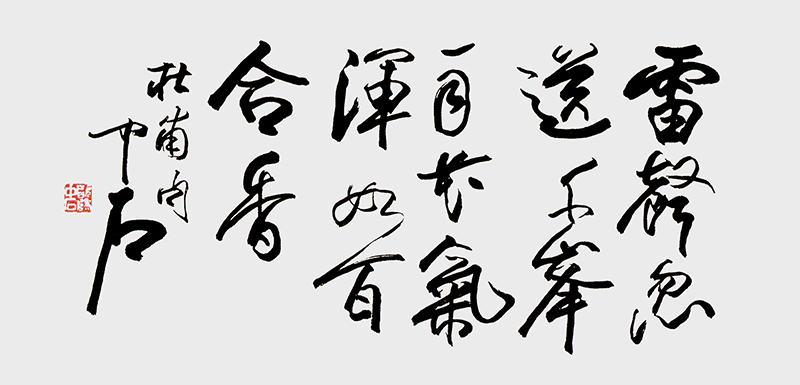 雷聲忽
送千峯
雨花氣
渾如百
合香
杜甫句
中石